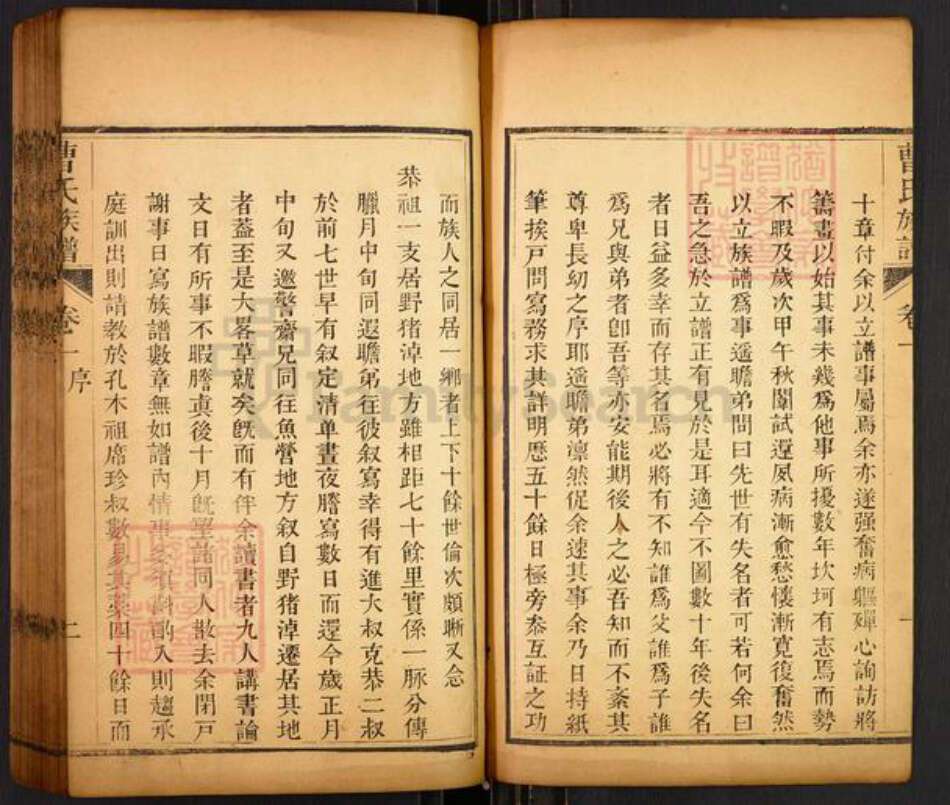 曹氏族譜 卷一
十章付余以立譜事屬焉余亦遂强奮病軀殫心詢訪將
籌畫以始其事未幾爲他事所擾數年坎坷有志焉而勢
不暇及歲次甲午秋闈試還夙病漸愈愁懷漸寬復奮然
以立族譜爲事遥瞻弟問曰先世有失名者可若何余曰
吾之急於立譜正有見於是耳適今不圖數十年後失名
者日益多幸而存其名焉必將有不知誰爲父誰爲子誰
爲兄與弟者卽吾等亦安能期後人之必吾知而不紊其
尊卑長幼之序耶遥瞻弟凛然促余速其事余乃日持紙
筆挨戸問寫務求其詳明歷五十餘日極旁叅互証之功
而族人之同居一鄉者上下十餘世倫次頗晰又念
恭祖一支居野猪淖地方雖相距七十餘里實係一脈分傳
臘月中旬同遐瞻弟往彼叙寫幸得有進大叔克恭二叔
於前七世早有叙定清单晝夜謄寫數日而還今歲正月
中旬又邀警齋兄同往魚營地方叙自野猪淖遷居其地
者葢至是大畧草就矣旣而有伴余讀書者九人講書論
文日有所事不暇謄眞後十月旣望諸同人散去余閉戸
謝事日寫族譜數章無如譜內情事多須斟酌入則趨承
庭訓出則請教於孔木祖席珍叔數易其藁四十餘日而
曹氏族譜 卷一 序 二
FamilySearch